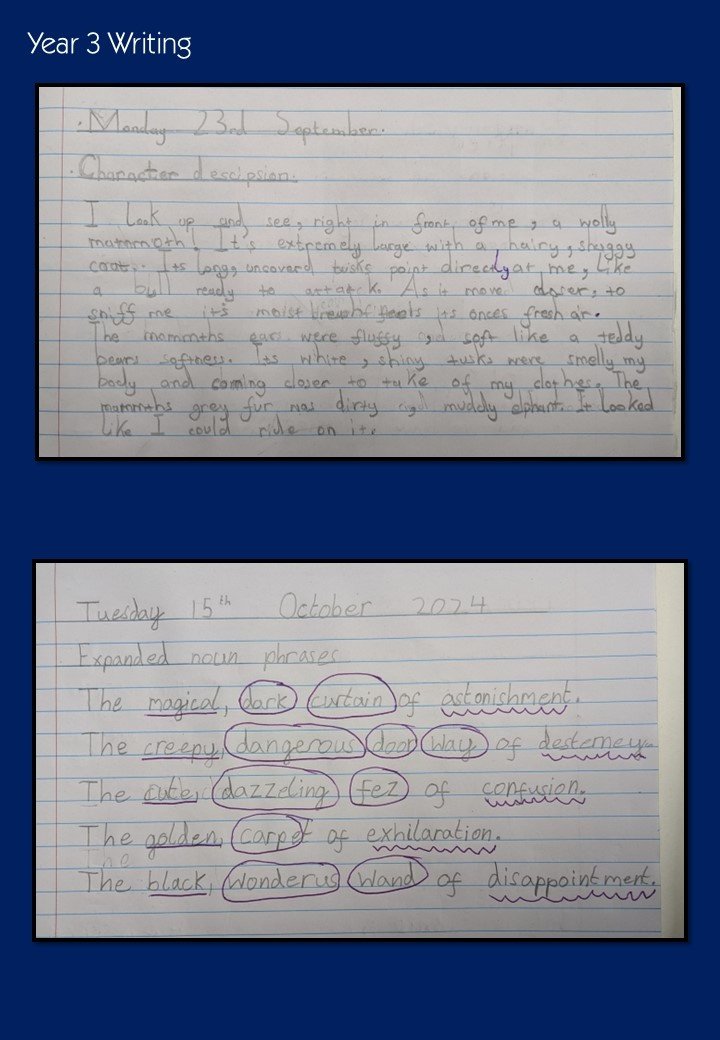 Year 3 Writing
Monday 23rd September.
Character descipsion.
I Look up and see, right in front of me, a wolly
mammoth! It's extremely large with a hairy, shaggy
coat. Its long, uncoverd tusks point directly at me, like
a bull ready to attatck. As it move closer, to
sniff me it's moist its onces fresh air.
The mommths ears were fluffy and soft like a teddy
bears softness. Its white, shiny tusks were smelly my
body and coming closer to take of my clothes. The
mammths grey fur was dirty and muddy elphant. It Looked
like I could ride on it.
Tuesday 15th October 2024
Expanded noun phrases
The magical, dark curtain of astonishment.
The creepy, dangerous door way of desterney.
The cute, dazzeling fez of confusion.
The golden, carpet of exhilaration.
The
The black, wonderus wand of disappointment.